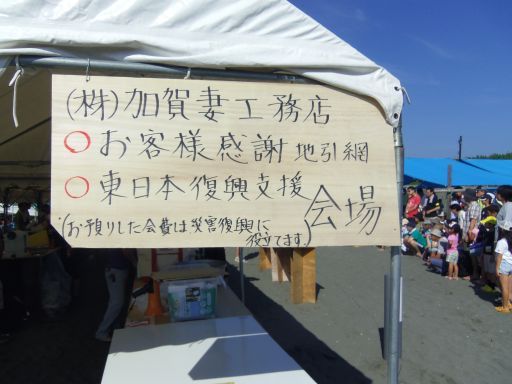 (株)加賀妻工務店
○お客様感謝地引網
○東日本復興支援
会場
(お預りした会費は災害復興に
役立てます)